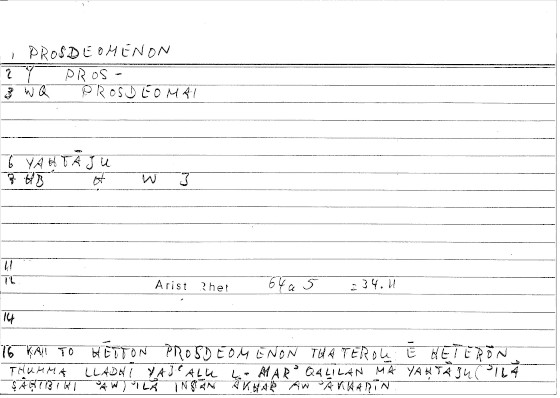 1 PROSDEOMENON
2 Y PROS-
3 WQ PROSDEOMAI
6 YAḤTĀJU
8 ḤB Ḥ W 3
11
12 Arist Rhet 64a5 =34.11
14
16 KAI TO HĒTTON PROSDEOMENON THATEROU Ē HETERŌN
THUMMA LLADHĪ YAJʿALU L-MARʾ QALĪLAN MĀ YAḤTĀJU( ʾILĀ
ṢĀḤIBIHI ʾAW) ʾILĀ INSĀN ĀKHAR AW ʾĀKHARĪN